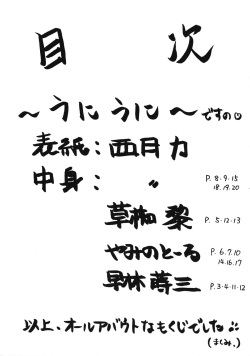 目次
～うにうに～ですの☺
表紙：西月力
中身：〃 P.8.9.15
18.19.20
草柳黎 P.5.12.13
やみのとーる P.6.7.10
14.16.17
早林蒔三 P.3.4.11.12
以上、オールアバウトなもくじでした
(まくみ。)